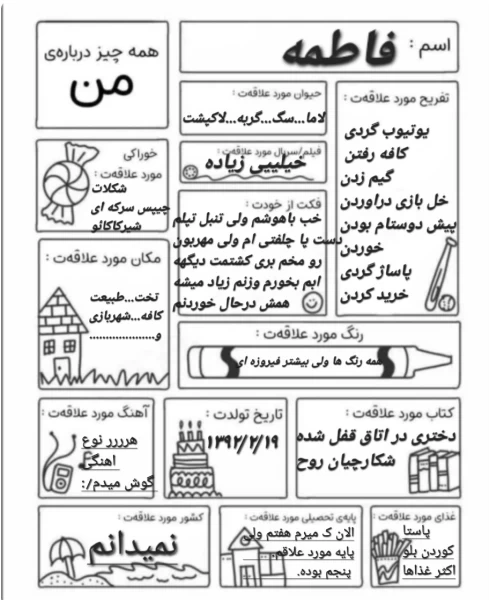 همه چیز درباره‌ی
من
اسم :
فاطمه
حیوان مورد علاقه‌ت :
لاما...سگ...گربه...لاکپشت
تفریح مورد علاقه‌ت :
یوتیوب گردی
کافه رفتن
گیم زدن
خل بازی دراوردن
پیش دوستام بودن
خوردن
پاساژ گردی
خرید کردن
خوراکی
مورد علاقه‌ت :
شکلات
چیپس سرکه ای
شیرکاکائو
فیلم/سریال مورد علاقه‌ت :
خیلییی زیاده
فکت از خودت :
خب باهوشم ولی تنبل تیلم
دست پا چلفتی ام ولی مهربون
رو مخم بری کشتمت دیگهه
ابم بخورم وزنم زیاد میشه
همش درحال خوردنم
مکان مورد علاقه‌ت :
تخت...طبیعت
کافه...شهربازی
و....................
رنگ مورد علاقه‌ت :
همه رنگ ها ولی بیشتر فیروزه ای
آهنگ مورد علاقه‌ت :
هرررر نوع
اهنگی
گوش میدم/:
تاریخ تولدت :
۱۳۹۲/۲/۱۹
کتاب مورد علاقه‌ت :
دختری در اتاق قفل شده
شکارچیان روح
کشور مورد علاقه‌ت :
نمیدانم
پایه‌ی تحصیلی مورد علاقه‌ت :
الان ک میرم هفتم ولی
پایه مورد علاقم.
پنجم بوده.
غذای مورد علاقه‌ت :
پاستا
کوردن بلو
اکثر غذاها